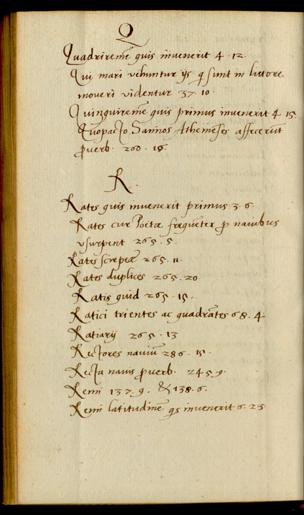 Q
Quadrireme quis invenerit 4. 12.
Qui mari vehuntur ijs q sunt in littore
moveri videntur 37. 10.
Quinquireme quis primus invenerit 4. 15.
Quopacto Samios Athenieses affecerit
proverb. 260. 16.
R.
Rates quis invenerit primus 3. 6.
Rates cur Poetae frequeter p navibus
usurpent 265. 5.
Rates 265. 11.
Rates duplices 265. 20.
Ratis quid 265. 15.
Ratici trientes ac quadrates 68. 4.
Ratiarij 265. 13
Rectores naviu 286. 15.
Recta navis proverb. 245 9.
Remi 137. 9. & 138. 6.
Remi latitudine qs invenerit 6. 23.